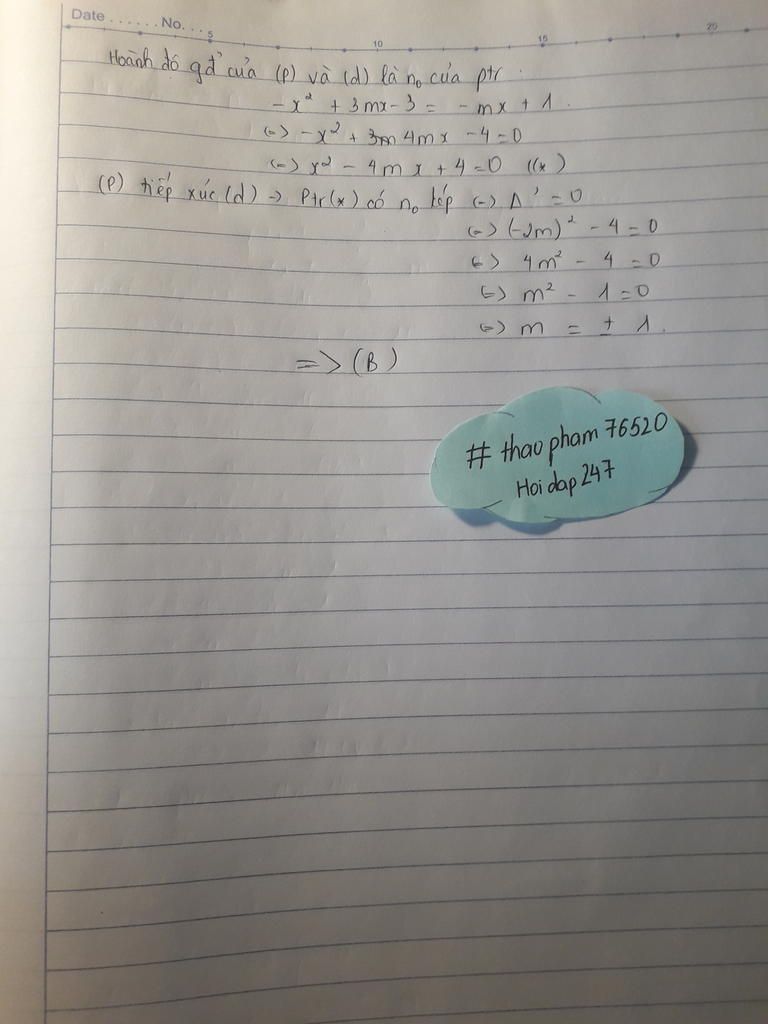 Date ...... No. ...
5 10 15 20
Hoành độ gđ của (P) và (d) là no của ptr
-x² + 3mx - 3 = -mx + 1.
(=) -x² + 3m 4mx - 4 = 0
(=) x² - 4mx + 4 = 0 ((*)
(P) tiếp xúc (d) → Ptr(*) có no kép (=) Δ' = 0
(=) (-2m)² - 4 = 0
(=) 4m² - 4 = 0
(=) m² - 1 = 0
(=) m = ± 1.
=> (B)
# thao pham 76520
Hoi dap 247